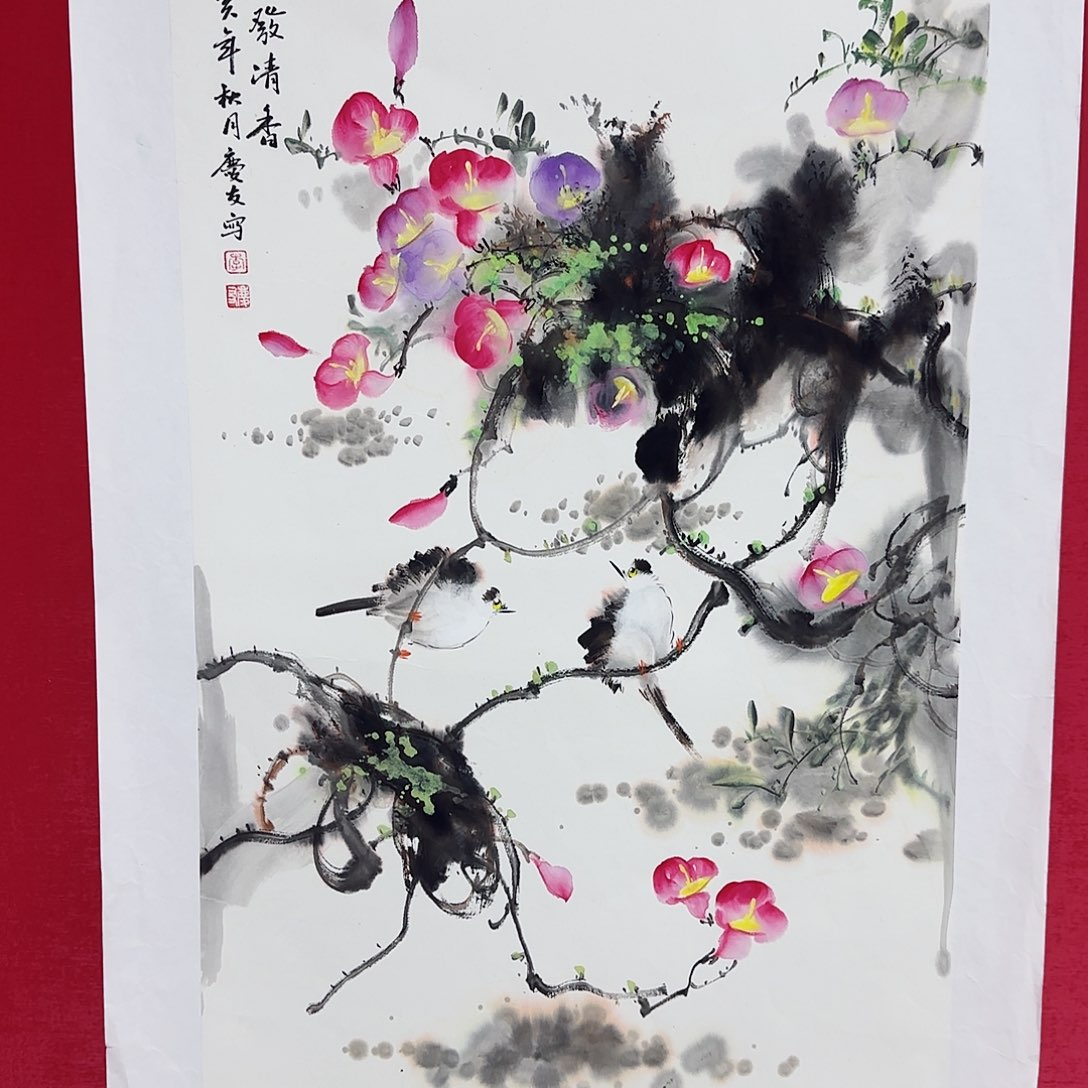 發清香
亥年秋月慶友寫